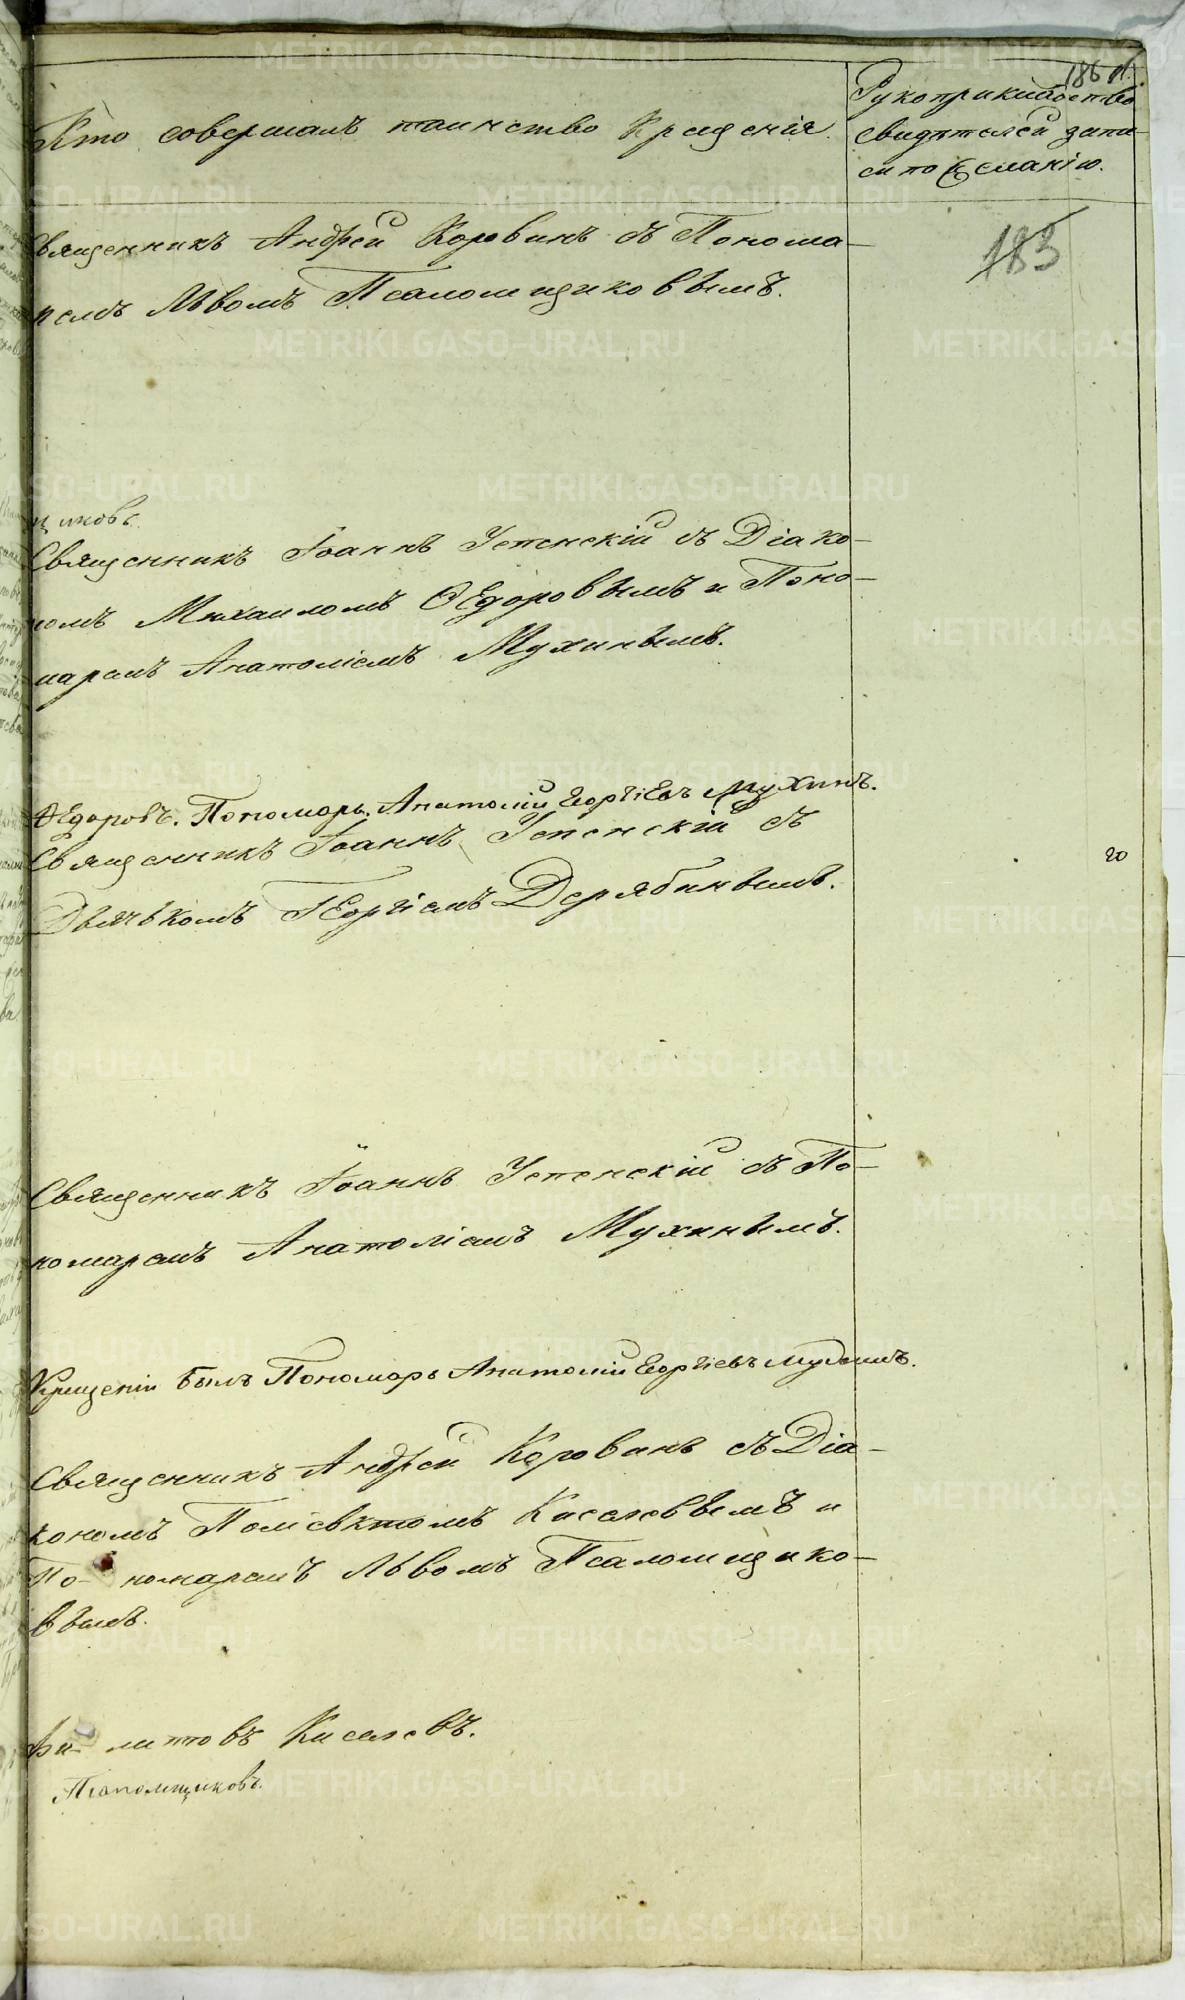 186 л.
Кто совершалъ таинство Крещенія.
Рукоприкладство
свидѣтелей запи-
си по желанію.
183
Священникъ Андрей Коровинъ съ Понома-
ремъ Львомъ Псаломщиковымъ.
щиковъ
Священникъ Іоаннъ Успенскій съ Діако-
номъ Михаиломъ Ѳедоровымъ и Поно-
маремъ Анатоліемъ Мухинымъ.
Ѳедоровъ. Пономарь Анатолій Георгіевъ Мухинъ.
Священникъ Іоаннъ Успенскій съ
20
Дьячькомъ Георгіемъ Дерябинымъ.
Священникъ Іоаннъ Успенскій съ По-
номаремъ Анатоліемъ Мухинымъ.
Крещеніи былъ Пономарь Анатолій Георгіевъ Мухинъ.
Священникъ Андрей Коровинъ съ Діа-
кономъ Поліевктомъ Киселевымъ и
По- номаремъ Львомъ Псаломщико-
вымъ.
литовъ Киселевъ.
Псаломщиковъ.
METRIKI.GASO-URAL.RU